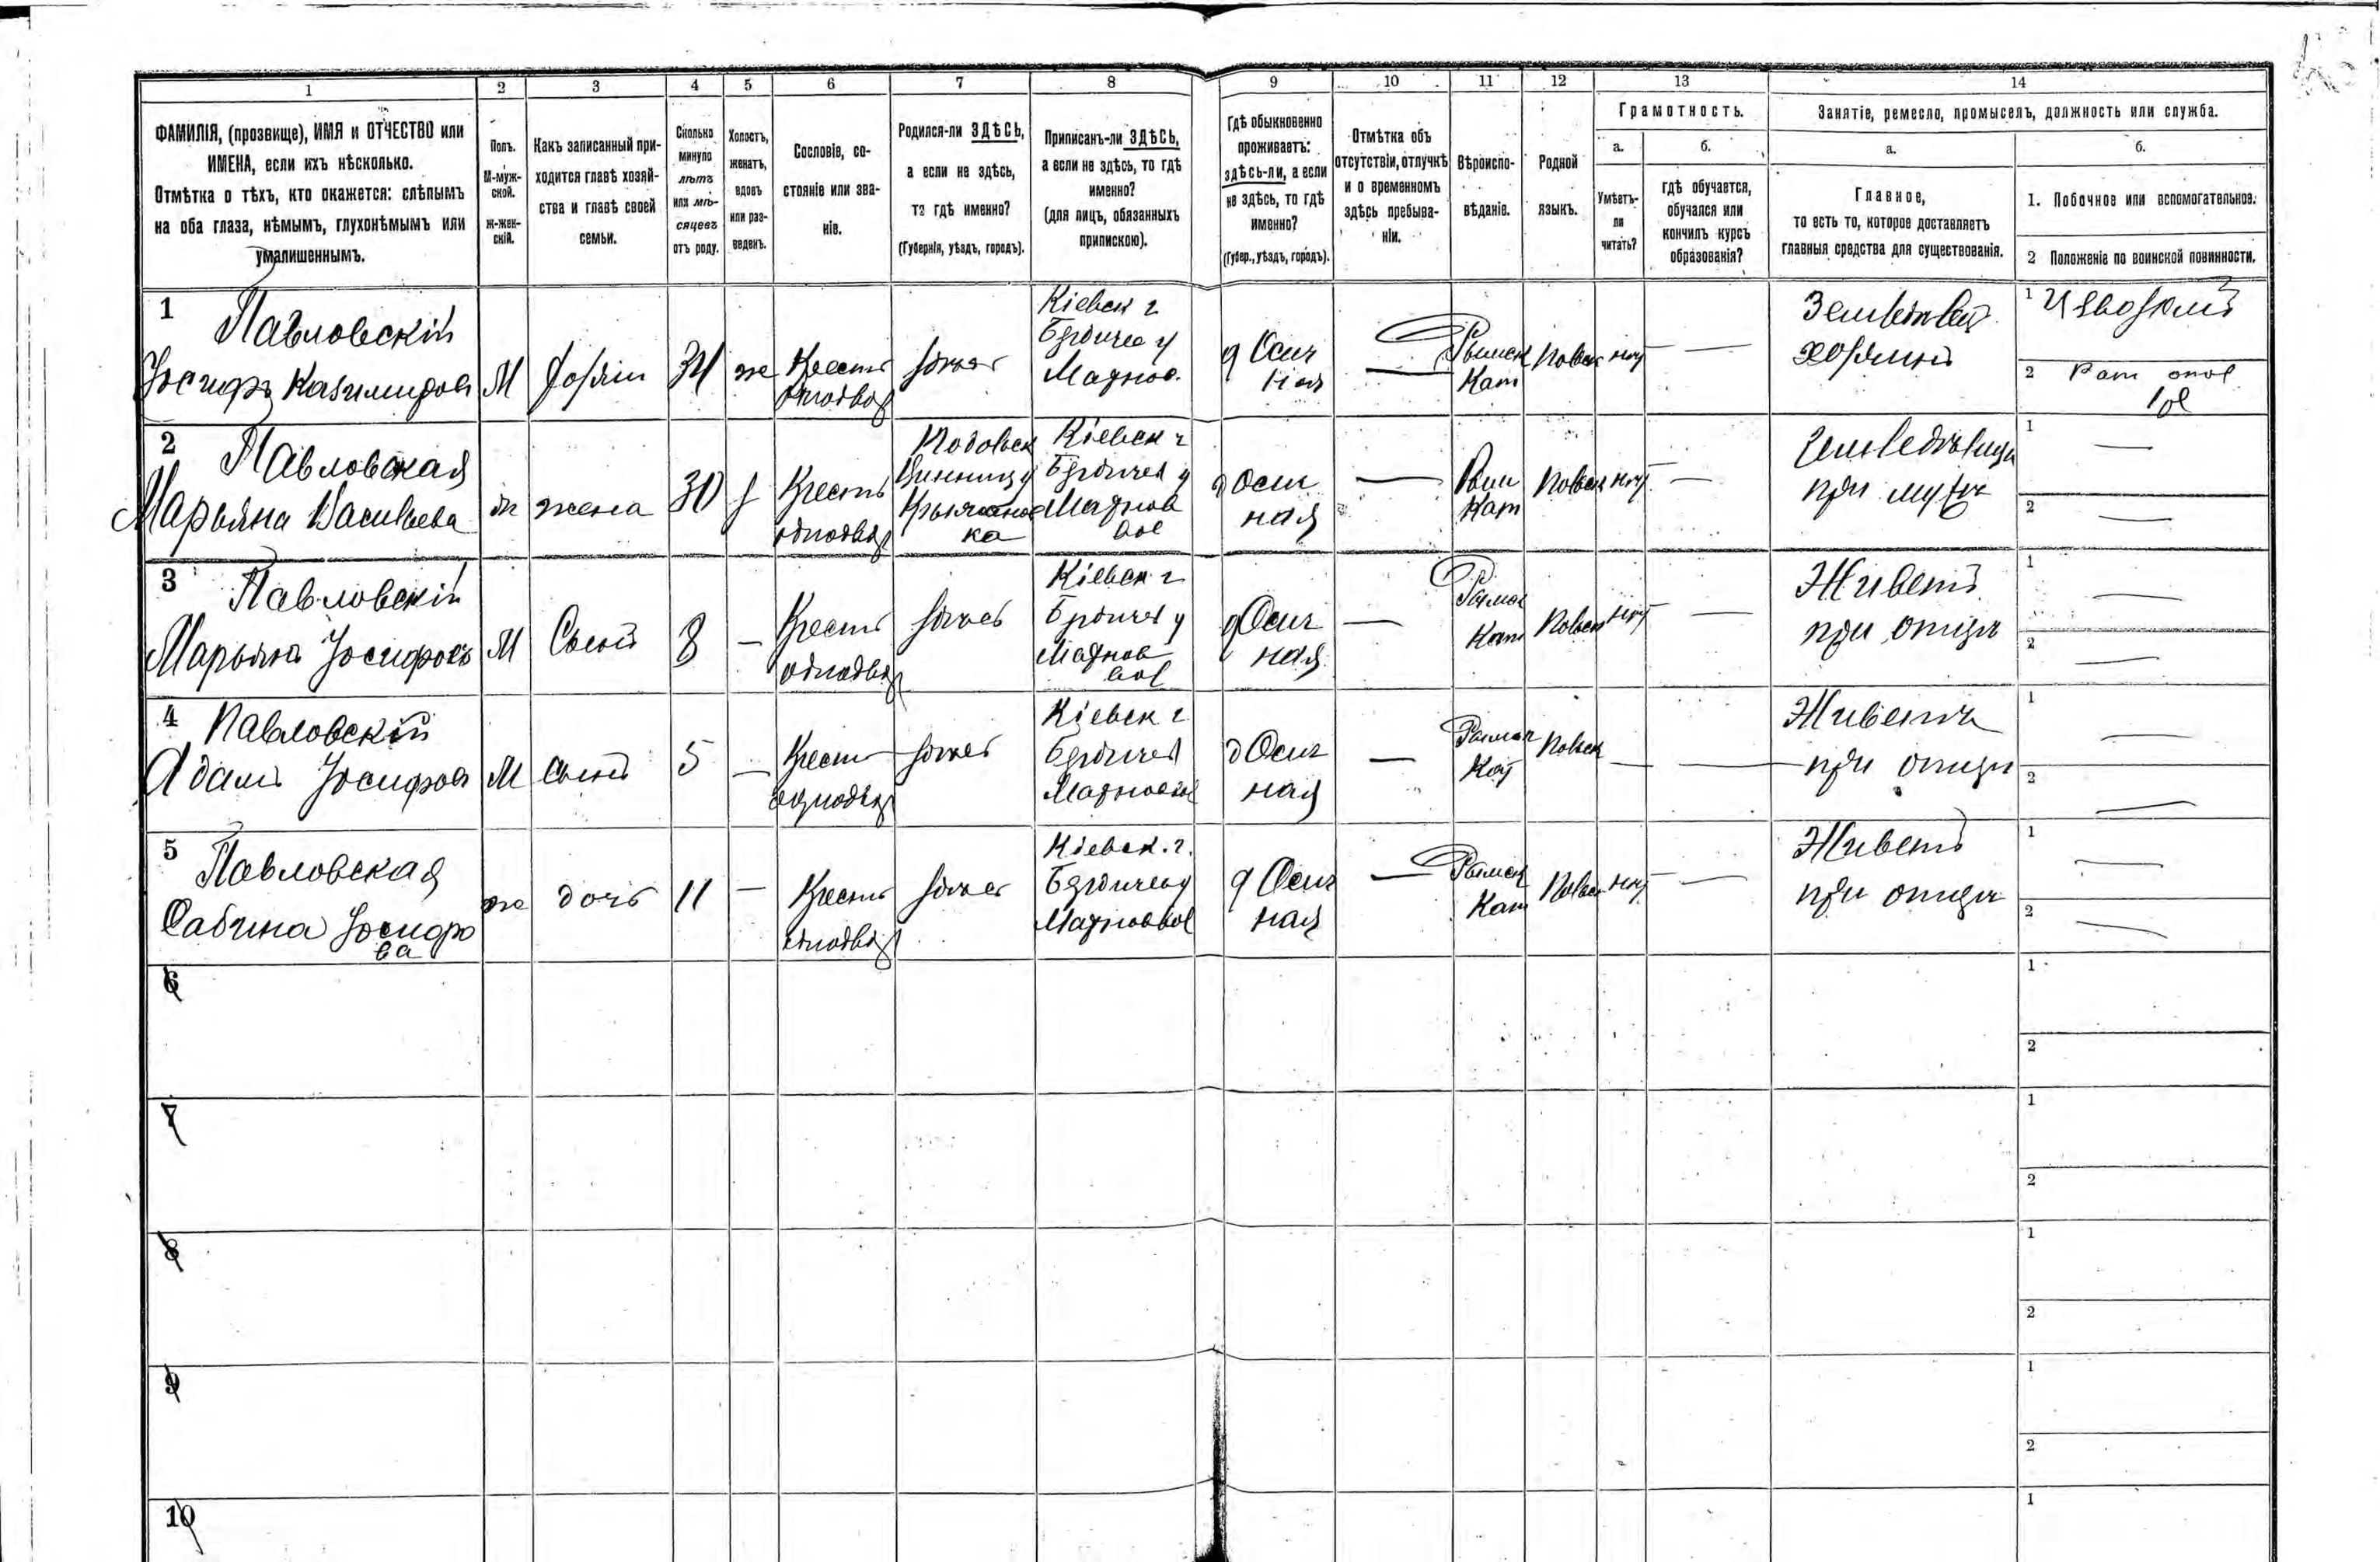 1 2 3 4 5 6 7 8 9 10 11 12 13 14
ФАМИЛІЯ, (прозвище), ИМЯ и ОТЧЕСТВО или
ИМЕНА, если ихъ нѣсколько.
Отмѣтка о тѣхъ, кто окажется: слѣпымъ
на оба глаза, нѣмымъ, глухонѣмымъ или
умалишеннымъ.
Полъ.
М-муж-
ской.
ж-жен-
скій.
Какъ записанный при-
ходится главѣ хозяй-
ства и главѣ своей
семьи.
Сколько
минуло
лѣтъ
или мѣ-
сяцевъ
отъ роду.
Холостъ,
женатъ,
вдовъ
или раз-
веденъ.
Сословіе, со-
стояніе или зва-
ніе.
Родился-ли ЗДѢСЬ,
а если не здѣсь,
то гдѣ именно?
(Губернія, уѣздъ, городъ).
Приписанъ-ли ЗДѢСЬ,
а если не здѣсь, то гдѣ
именно?
(для лицъ, обязанныхъ
припискою).
Гдѣ обыкновенно
проживаетъ:
здѣсь-ли, а если
не здѣсь, то гдѣ
именно?
(Губер., уѣздъ, городъ).
Отмѣтка объ
отсутствіи, отлучкѣ
и о временномъ
здѣсь пребыва-
ніи.
Вѣроиспо-
вѣданіе.
Родной
языкъ.
Грамотность.
а.
Умѣетъ-
ли
читать?
б.
гдѣ обучается,
обучался или
кончилъ курсъ
образованія?
Занятіе, ремесло, промыселъ, должность или служба.
а.
Главное,
то есть то, которое доставляетъ
главныя средства для существованія.
б.
1. Побочное или вспомогательное.
2 Положеніе по воинской повинности.
1 Павловскій
Іосифъ Казимировъ
М
34
же
Крест
Кіевск г
Бердичев у
Махнов.
д Осич
ная
Римск
Кат
Польск
нѣт
хозяинъ
1 Извозомъ
2 Рат опол
2 Павловская
Марьяна Васильева
ж
жена
30
з
Крест
однодвор
Подольск
Винниц у
ка
Кіевск г
Бердичев у
Махнов
вол
д Осич
ная
Рим
Кат
Польск
нѣт
при мужѣ
1
2
3 Павловскій
Марьянъ Іосифовъ
М
Сынъ
8
Крест
однодвор
здѣсь
Кіевск г
Бердичев у
Махнов
вол
д Осич
ная
Римск
Кат
Польск
нѣт
Живетъ
при отцѣ
1
2
4 Павловскій
Адамъ Іосифов
М
сынъ
5
Крест
однодвор
здѣсь
Кіевск г
Бердичев
Махнов вол
д Осич
ная
Римск
Кат
Польск
Живетъ
при отцѣ
1
2
5 Павловская
Сабина Іосифо
ва
же
дочь
11
Крест
однодвор
здѣсь
Кіевск. г.
Бердичев у
Махнов вол
д Осич
ная
Римск
Кат
Польск
нѣт
Живетъ
при отцѣ
1
2
6
1
2
7
1
2
8
1
2
9
1
2
10
1